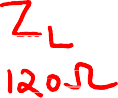 Z_L
120Ω